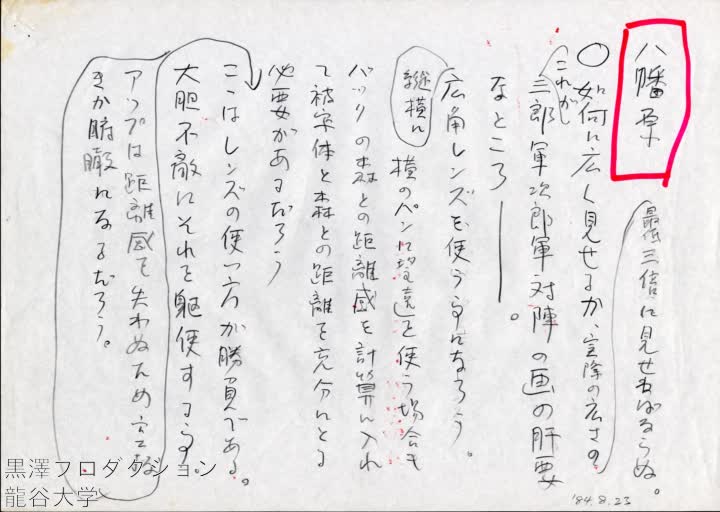 八幡原
最低三倍に見せねばならぬ。
○如何に広く見せるか、実際の広さの
これが
三郎軍次郎軍対陣の画の肝要
なところ――。
広角レンズを使う事になろう。
縦横に
横のパンに望遠を使う場合も
バックの森との距離感を計算に入れ
て被写体と森との距離を充分にとる
必要があるだろう
ここはレンズの使い方が勝負である。
大胆不敵にそれを駆使する事
アップは距離感を失わぬため
きか俯瞰になるだろう。
'84.8.23
黒澤プロダクション
龍谷大学